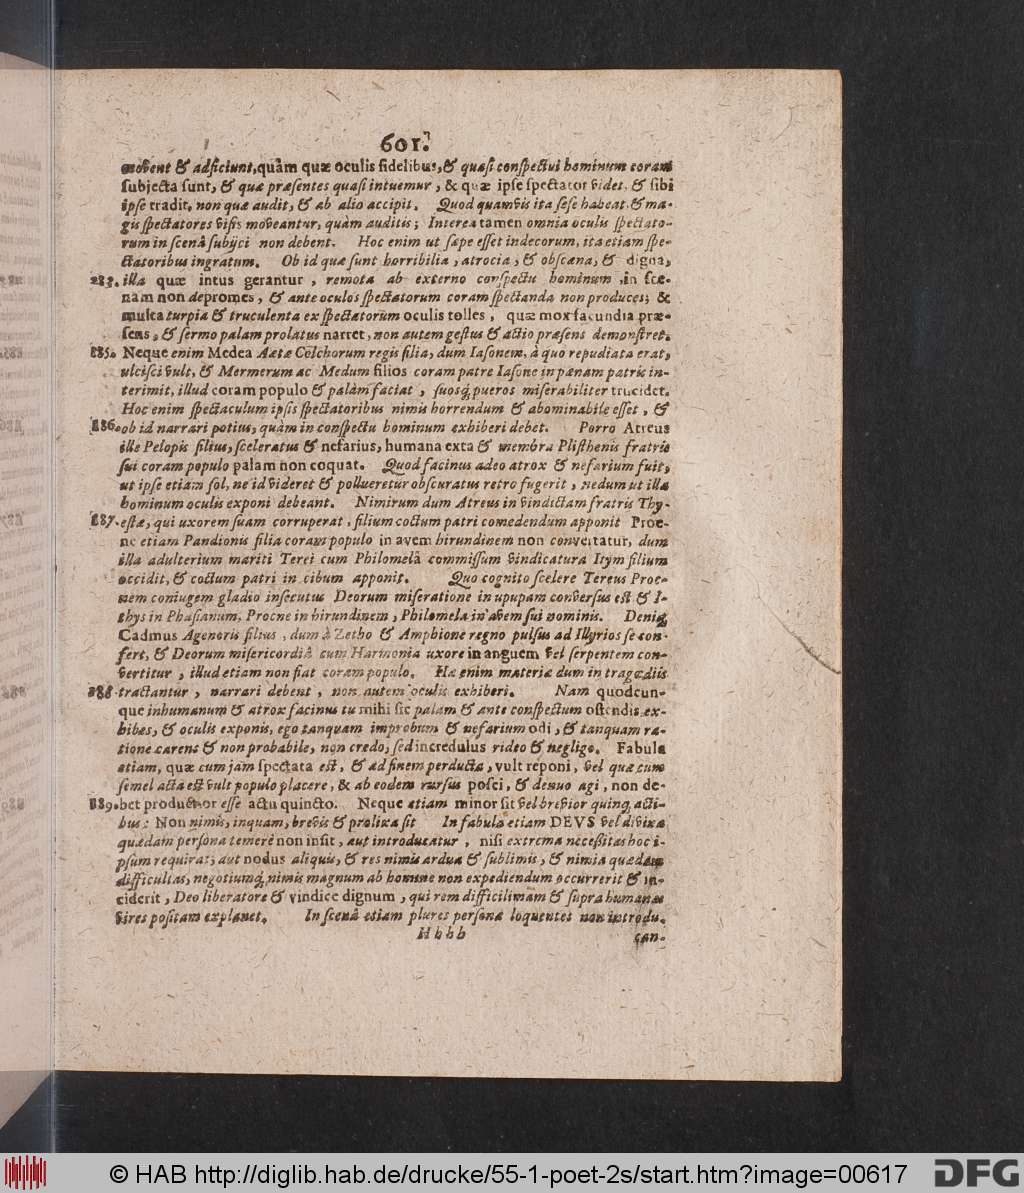 601.
movent & adficiunt, quàm quæ oculis fidelibus, & quasi conspectui hominum coram
subjecta sunt, & quæ præsentes quasi intuemur, & quæ ipse spectator videt, & sibi
ipse tradit, non quæ audit, & ab alio accipit. Quod quamvis ita sese habeat, & ma-
gis spectatores visis moveantur, quàm auditis; Interea tamen omnia oculis spectato-
rum in scenâ subijci non debent. Hoc enim ut sæpe esset indecorum, ita etiam spe-
ctatoribus ingratum. Ob id quæ sunt horribilia, atrocia, & obscæna, & digna,
283. illa quæ intus gerantur, remota ab externo conspectu hominum, in sce-
nam non depromes, & ante oculos spectatorum coram spectanda non produces; &
multa turpia & truculenta ex spectatorum oculis tolles, quæ mox facundia præ-
sens, & sermo palam prolatus narret, non autem gestus & actio præsens demonstret.
185. Neque enim Medea Aætæ Colchorum regis filia, dum Iasonem, à quo repudiata erat,
ulcisci vult, & Mermerum ac Medum filios coram patre Iasone in pœnam patris in-
terimit, illud coram populo & palàm faciat, suosq; pueros miserabiliter trucidet.
Hoc enim spectaculum ipsis spectatoribus nimis horrendum & abominabile esset, &
186. ob id narrari potius, quàm in conspectu hominum exhiberi debet. Porro Atreus
ille Pelopis filius, sceleratus & nefarius, humana exta & membra Plisthenis fratris
sui coram populo palam non coquat. Quod facinus adeo atrox & nefarium fuit,
ut ipse etiam sol, ne id videret & pollueretur obscuratus retro fugerit, nedum ut illa
hominum oculis exponi debeant. Nimirum dum Atreus in vindictam fratris Thy-
187. estæ, qui uxorem suam corruperat, filium coctum patri comedendum apponit Proc-
ne etiam Pandionis filia coram populo in avem hirundinem non convertatur, dum
illa adulterium mariti Terei cum Philomelâ commissum vindicatura Itym filium
occidit, & coctum patri in cibum apponit. Quo cognito scelere Tereus Proc-
nem coniugem gladio insecutus Deorum miseratione in upupam conversus est & I-
thys in Phasianum, Procne in hirundinem, Philomela in avem sui nominis. Deniq;
Cadmus Agenoris filius, dum à Zetho & Amphione regno pulsus ad Illyrios se con-
fert, & Deorum misericordiâ cum Harmonia uxore in anguem vel serpentem con-
vertitur, illud etiam non fiat coram populo. Hæ enim materiæ dum in tragœdiis
188. tractantur, narrari debent, non autem oculis exhiberi. Nam quodcun-
que inhumanum & atrox facinus tu mihi sic palam & ante conspectum ostendis ex-
hibes, & oculis exponis, ego tanquam improbum & nefarium odi, & tanquam ra-
tione carens & non probabile, non credo, sed incredulus rideo & negligo. Fabula
etiam, quæ cum jam spectata est, & ad finem perducta, vult reponi, vel quæ cum
semel acta est vult populo placere, & ab eodem rursus posci, & denuo agi, non de-
189. bet productior esse actu quincto. Neque etiam minor sit vel brevior quinq; acti-
bus: Non nimis, inquam, brevis & prolixa sit In fabula etiam DEVS vel divina
quædam persona temerè non insit, aut introducatur, nisi extrema necessitas hoc i-
psum requirat; aut nodus aliquis, & res nimis ardua & sublimis, & nimia quædam
difficultas, negotiumq; nimis magnum ab homine non expediendum occurrerit & in-
ciderit, Deo liberatore & vindice dignum, qui rem difficilimam & supra humanas
vires positam explanet. In scenâ etiam plures personæ loquentes non introdu-
Hhhh
can-
© HAB http://diglib.hab.de/drucke/55-1-poet-2s/start.htm?image=00617
DFG